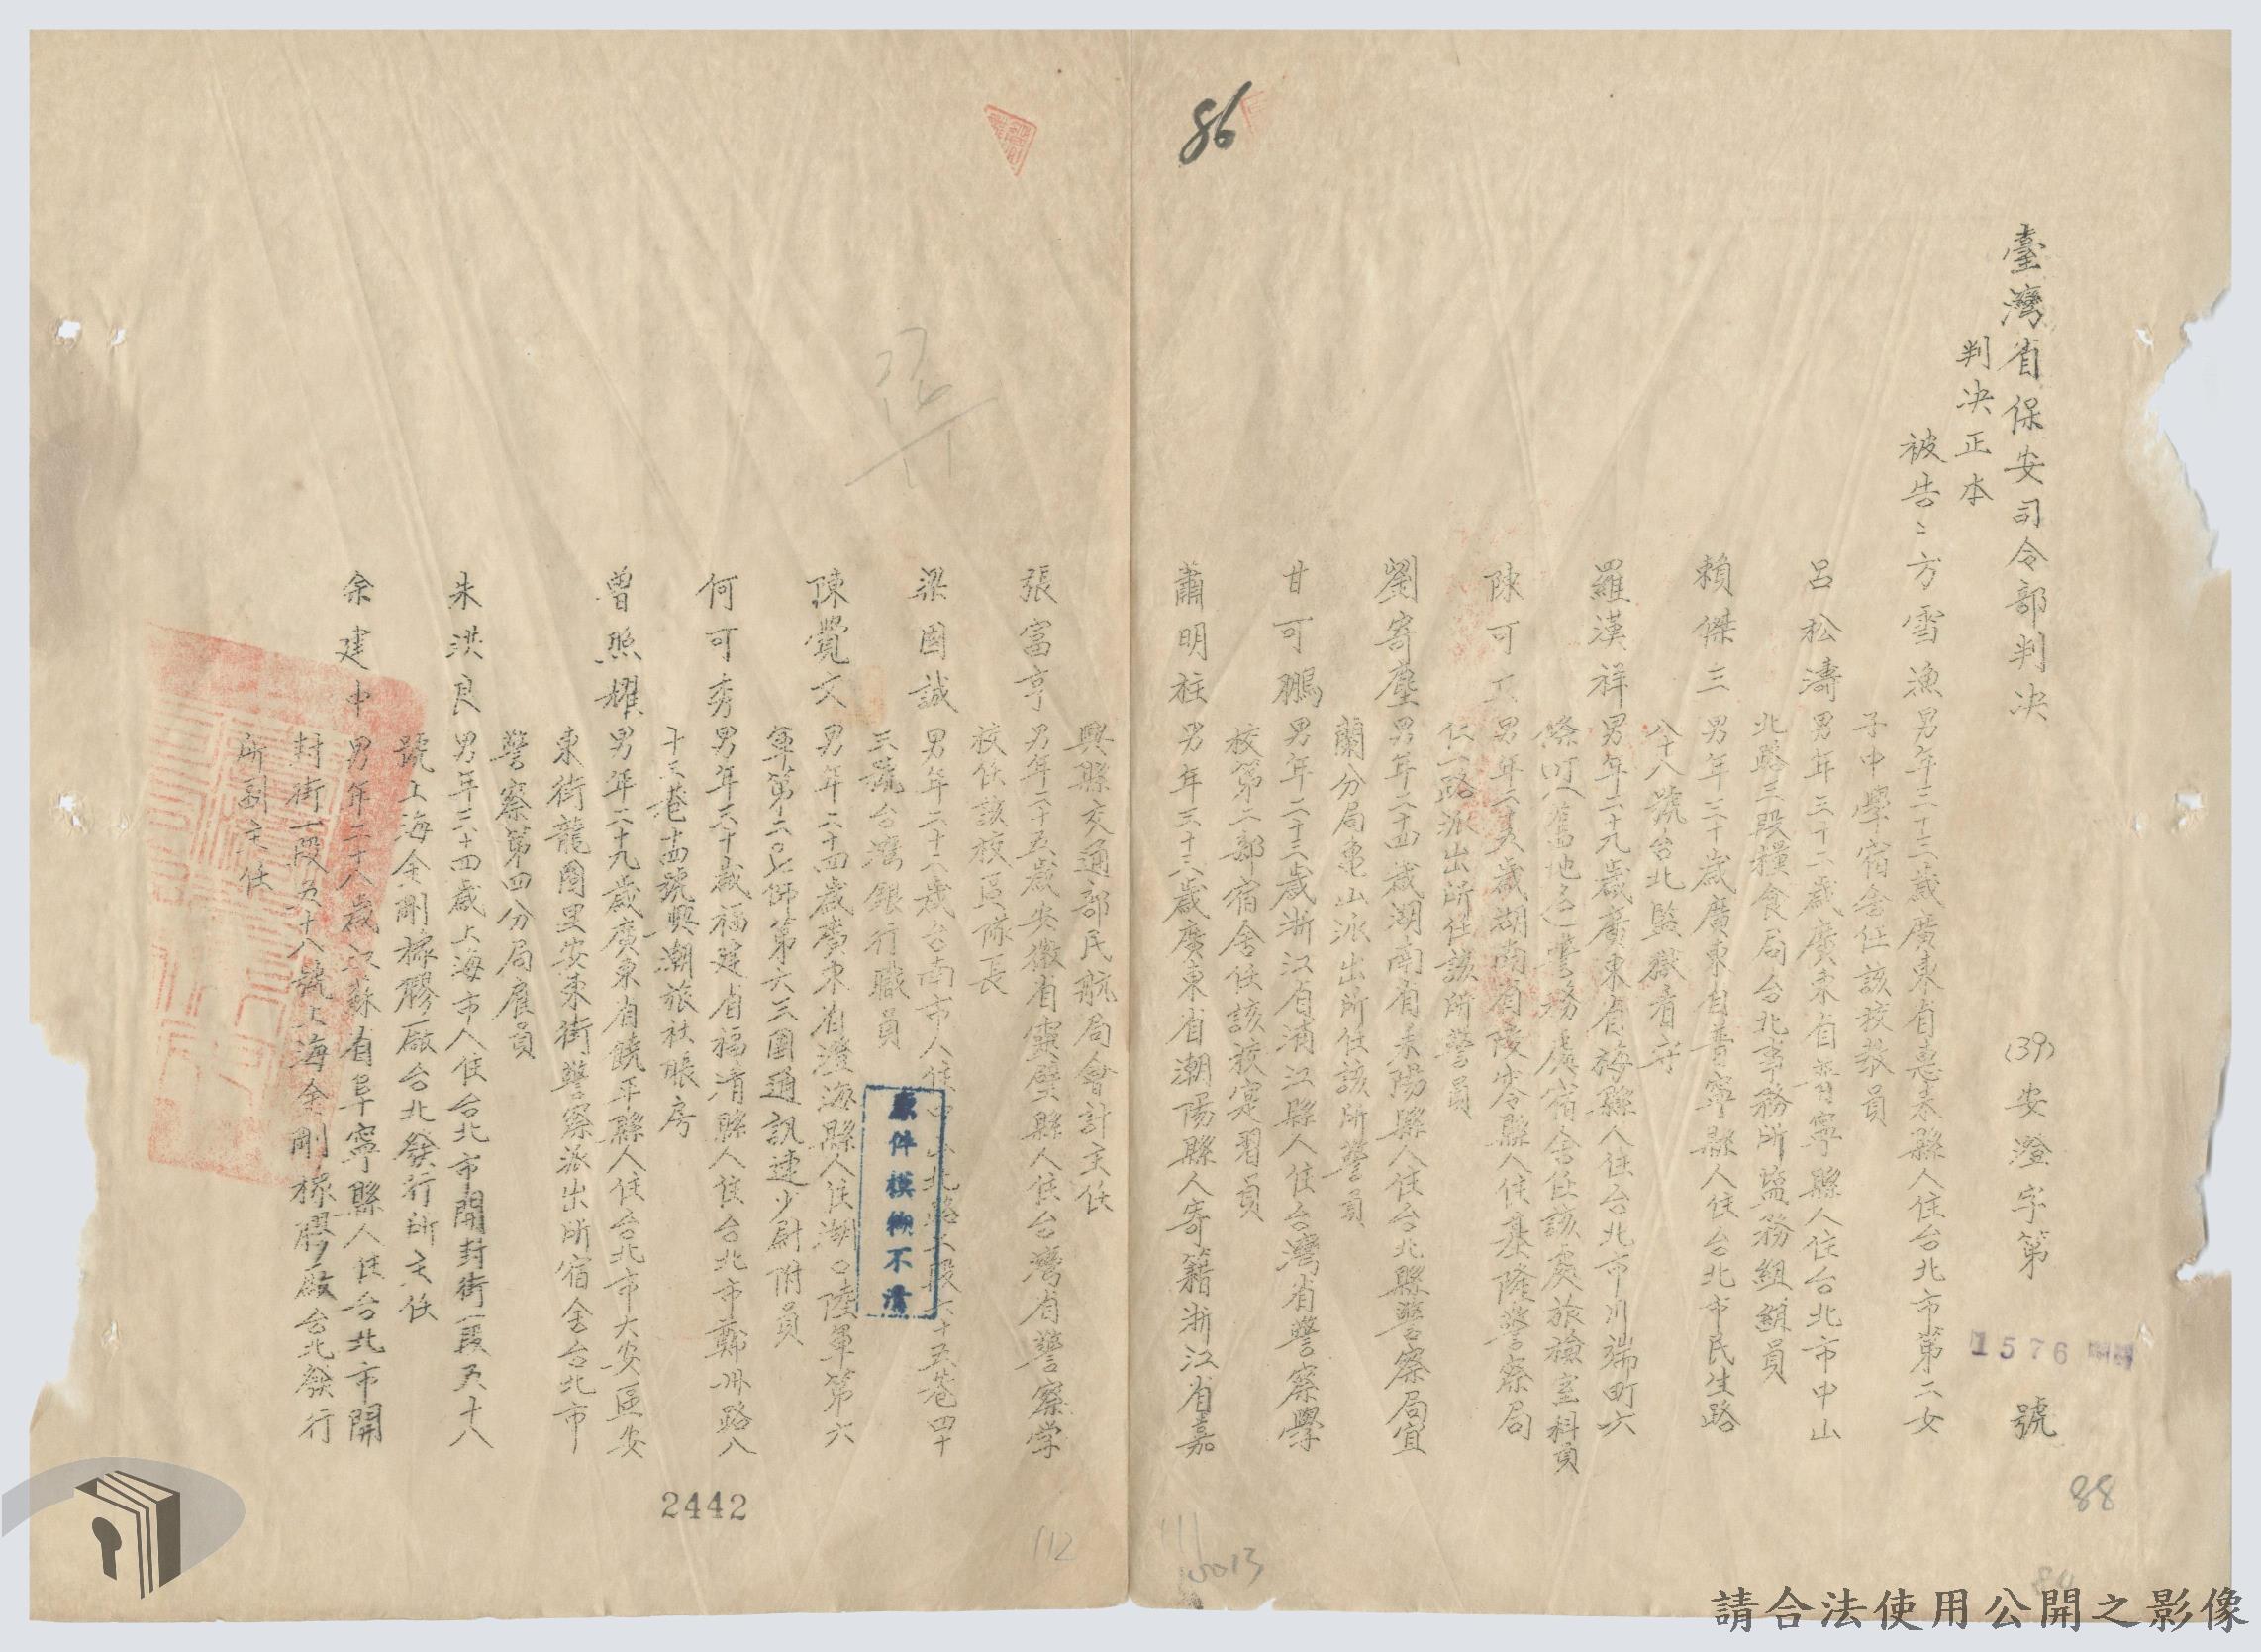 臺灣省保安司令部判决 (39)安澄字第1576號
判决正本
被告:方雪漁 男年三十三歲廣東省惠来縣人住台北市第二女
子中學宿舍任該校教員
呂松濤 男年三十二歲廣東省普寧縣人住台北市中山
北路三段糧食局台北事務所監務組組員
賴傑三 男年三十歲廣東省普寧縣人住台北市民生路
八十八號台北監獄看守
羅漢祥 男年二十九歲廣東省梅縣人住台北市川端町六
條町 警務處宿舍任該處旅檢室科員
陳可 男年二十 歲湖南省 縣人住基隆警察局
仁一路派出所任該所警員
劉寄塵 男年二十四歲湖南省耒陽縣人住台北縣警察局宜
蘭分局龜山派出所任該所警員
甘可鵬 男年二十三歲浙江省浦江縣人住台灣省警察學
校第二部宿舍任該校寔習員
蕭明柱 男年三十三歲廣東省潮陽縣人寄籍浙江省嘉
興縣交通部民航局會計主任
張富亨 男年二十五歲安徽省靈璧縣人住台灣省警察学
校任該校區隊長
梁國誠 男年二十二歲台南市人住中山北路 段六十五巷四十
三號台灣銀行職員
陳覺文 男年二十四歲廣東省澄海縣人住湖口陸軍第六
軍第二〇七師第六三團通訊連少尉附員
何可秀 男年三十歲福建省福清縣人住台北市鄭州路八
十三巷十四號興潮旅社賬房
曾照耀 男年二十九歲廣東省饒平縣人住台北市大安區安
東街龍圖里安東街警察派出所宿舍台北市
警察第四分局雇員
朱洪良 男年三十四歲上海市人住台北市開封街一段五十八
號上海金剛橡膠廠台北發行所主任
余建中 男年二十八歲江蘇省阜寧縣人住台北市開
封街一段五十八號上海金剛橡膠廠台北發行
所副主任
原件模糊不清
86
88
2442
112
111
0013
請合法使用公開之影像